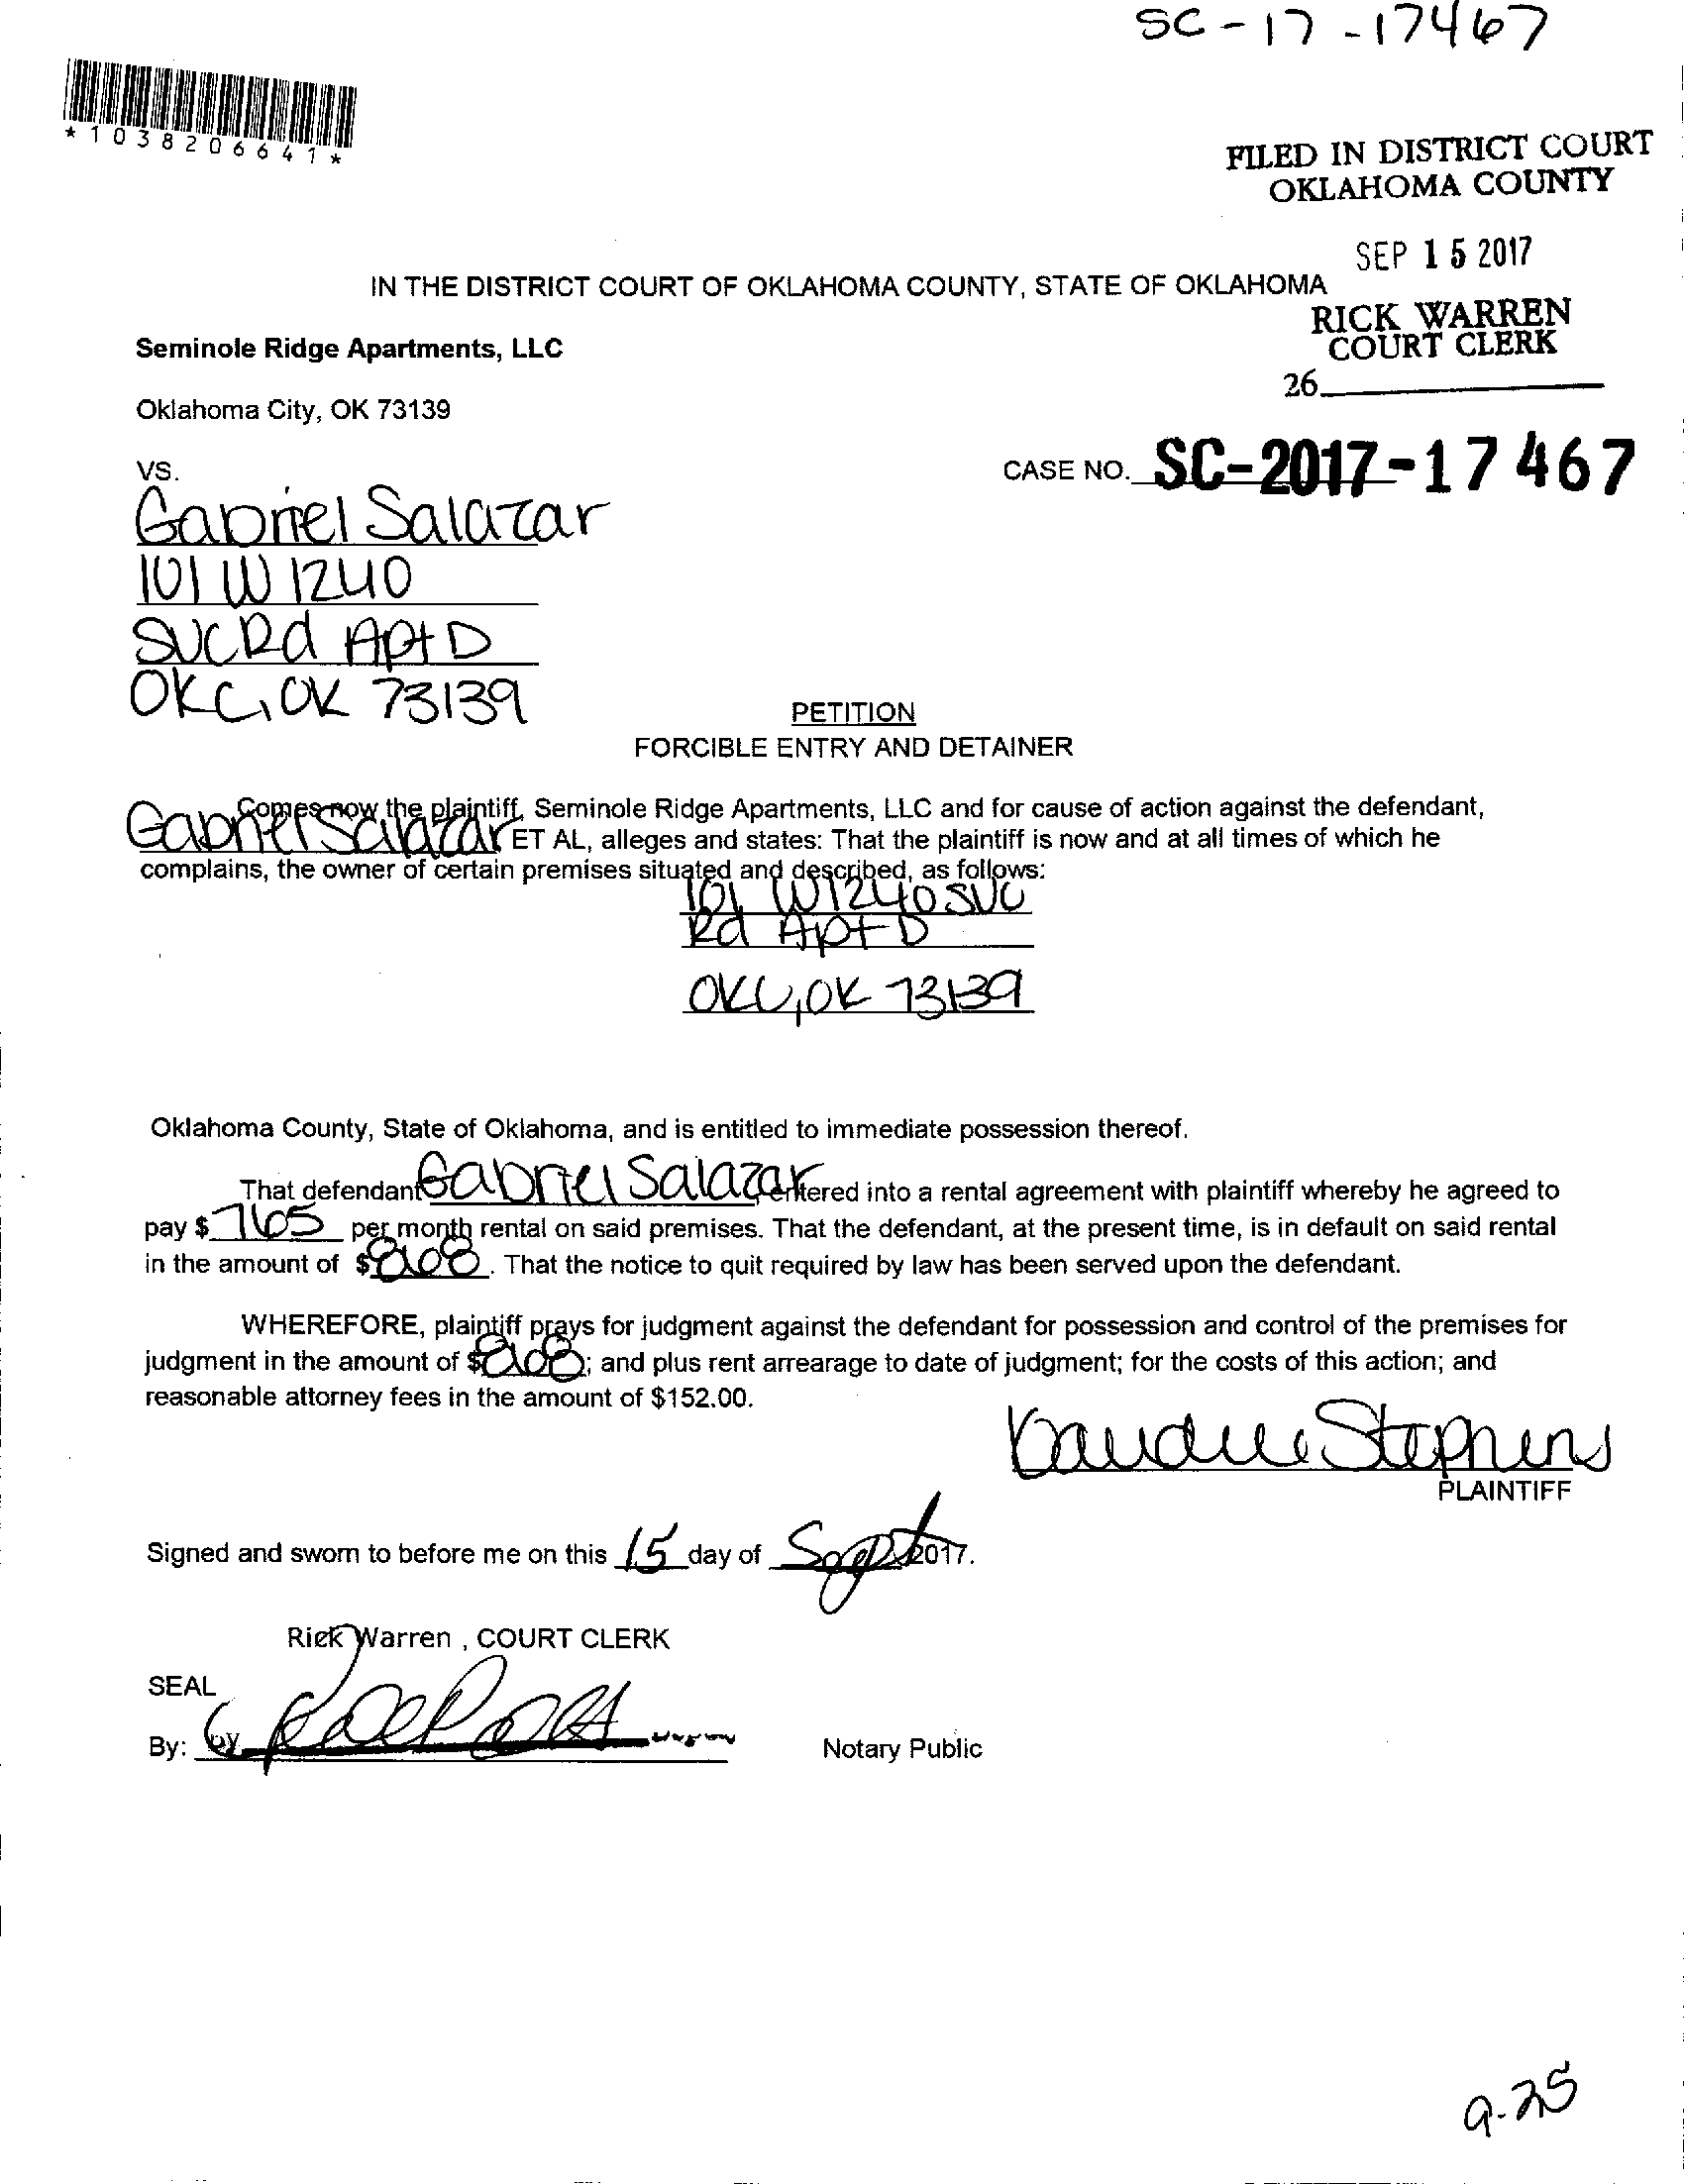 SC-17-17467
*1038206641*
FILED IN DISTRICT COURT
OKLAHOMA COUNTY
SEP 15 2017
IN THE DISTRICT COURT OF OKLAHOMA COUNTY, STATE OF OKLAHOMA
RICK WARREN
COURT CLERK
26
Seminole Ridge Apartments, LLC
Oklahoma City, OK 73139
VS.
CASE NO. SC-2017-17467
Gabriel Salazar
101 W I240
SVC Rd Apt D
OKC, OK 73139
PETITION
FORCIBLE ENTRY AND DETAINER
Comes now the plaintiff, Seminole Ridge Apartments, LLC and for cause of action against the defendant,
Gabriel Salazar ET AL, alleges and states: That the plaintiff is now and at all times of which he
complains, the owner of certain premises situated and described, as follows:
101 W I240 SVC
Rd Apt D
OKC, OK 73139
Oklahoma County, State of Oklahoma, and is entitled to immediate possession thereof.
That defendant Gabriel Salazar entered into a rental agreement with plaintiff whereby he agreed to
pay $ 765 per month rental on said premises. That the defendant, at the present time, is in default on said rental
in the amount of $ . That the notice to quit required by law has been served upon the defendant.
WHEREFORE, plaintiff prays for judgment against the defendant for possession and control of the premises for
judgment in the amount of $ ; and plus rent arrearage to date of judgment; for the costs of this action; and
reasonable attorney fees in the amount of $152.00.
Stephens
PLAINTIFF
Signed and sworn to before me on this 15 day of Sept 2017.
Rick Warren , COURT CLERK
SEAL
By:
Notary Public
9-25